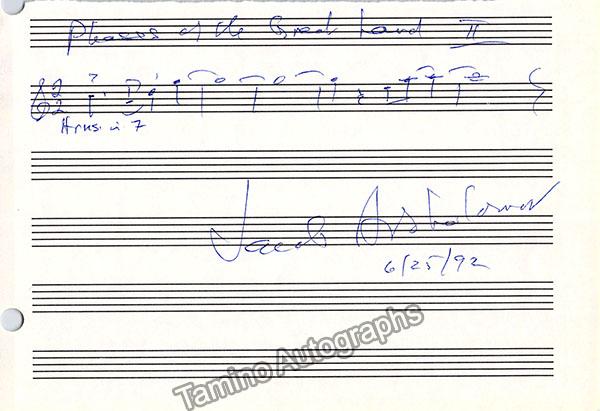 Phases of the Great Land II
2
2
Jacob Avshalomov
6/25/92
Tamino Autographs